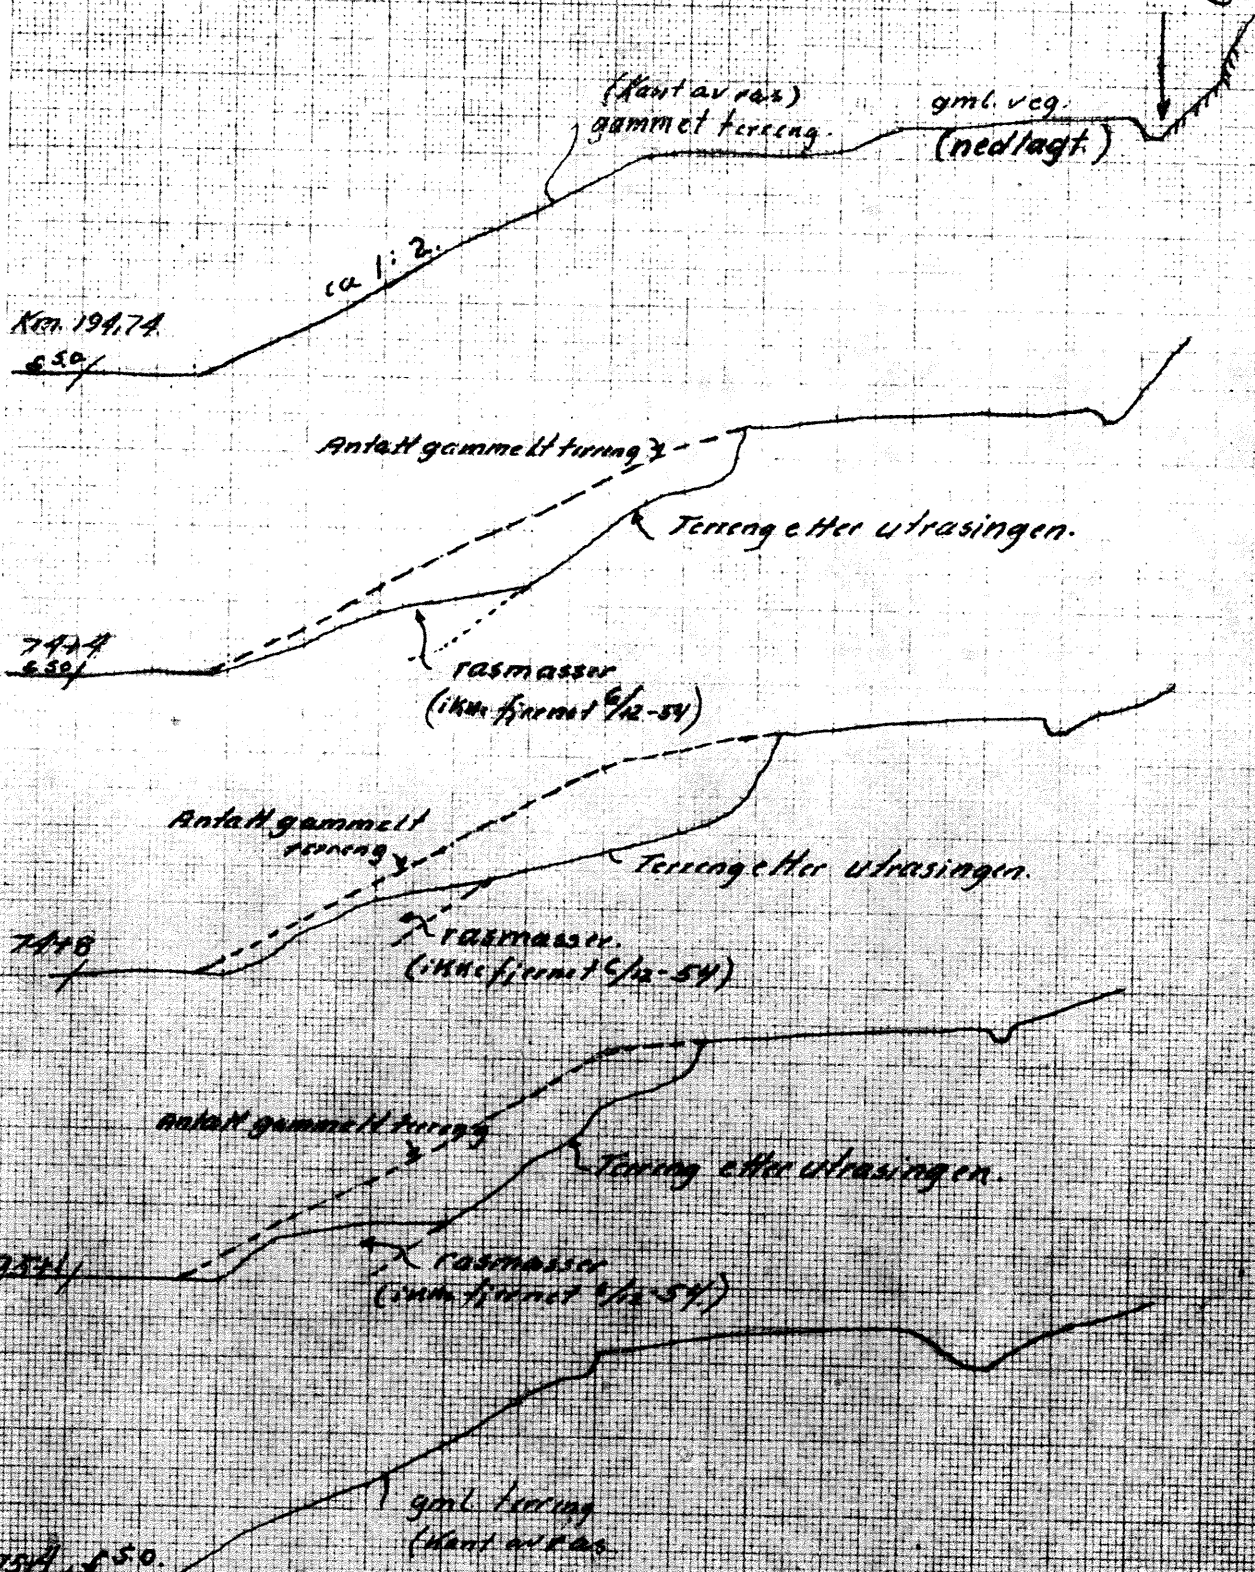 (Kant av ras)
gammet terreng.
gml. veg.
(nedlagt.)
ca 1:2.
Km. 194.74.
s.o.
Antatt gammelt terreng
Terreng etter utrasingen.
74+4
s.o.
rasmasser
(ikke fjernet 6/12-54)
Antatt gammelt
terreng
Terreng etter utrasingen.
74+8
rasmasser.
(ikke fjernet 6/12-54)
Antatt gammelt terreng
Terreng etter utrasingen.
75+1
rasmasser
(ikke fjernet 6/12-54)
gml. terreng
(Kant av ras
75+4 s.o.